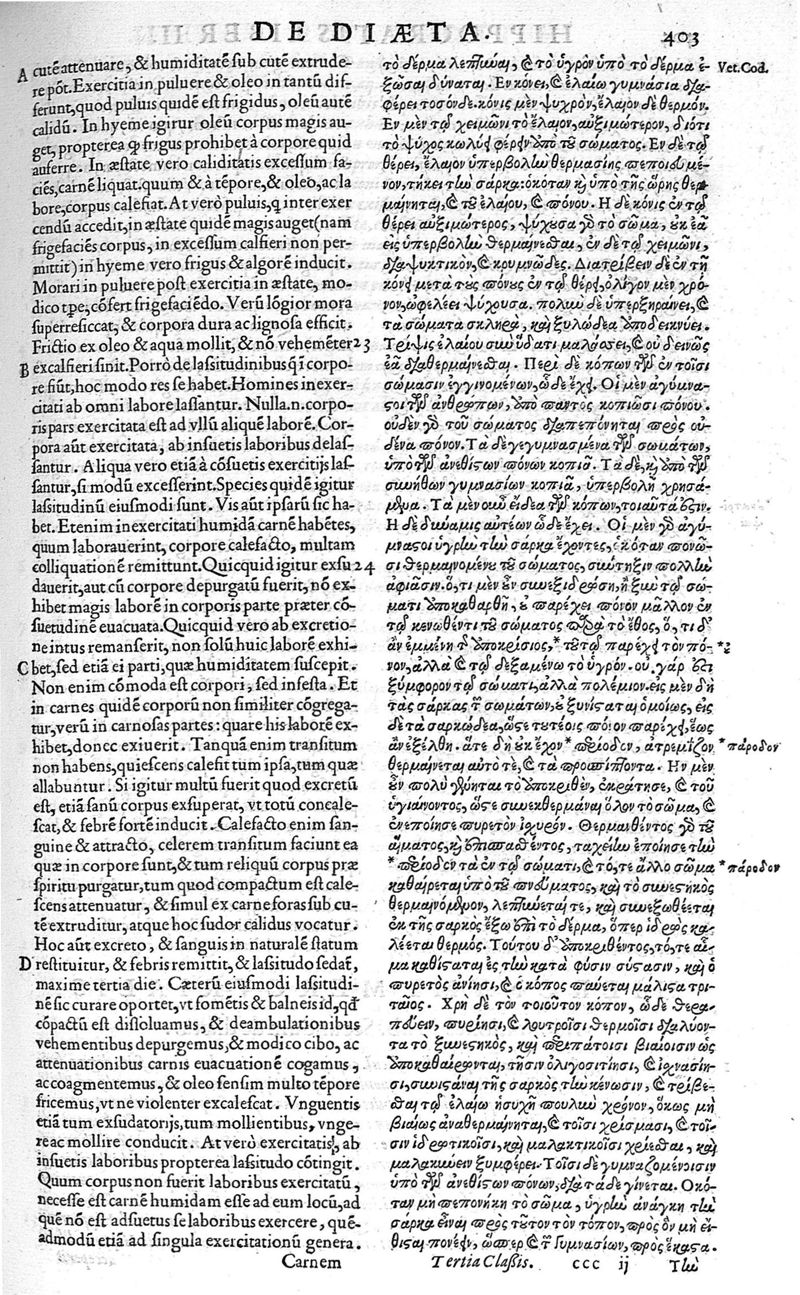 DE DIÆTA.
403
A cutē attenuare, & humiditatē sub cutē extrude-
re pōt. Exercitia in puluere & oleo in tantū dif-
ferunt, quod puluis quidē est frigidus, oleū autē
calidū. In hyeme igitur oleū corpus magis au-
get, propterea ꝙ frigus prohibet à corpore quid
auferre. In æstate vero caliditatis excessum fa-
ciēs, carnē liquat. quum & à tēpore, & oleo, ac la
bore, corpus calefiat. At verò puluis, q̨ inter exer
cendū accedit, in æstate quidē magis auget (nam
frigefaciēs corpus, in excessum calfieri non per-
mittit) in hyeme vero frigus & algorē inducit.
Morari in puluere post exercitia in æstate, mo-
dico tꝑe, cōfert frigefaciēdo. Verū lōgior mora
superresiccat, & corpora dura ac lignosa efficit.
Frictio ex oleo & aqua mollit, & nō vehemēter 23
B excalfieri sinit. Porrò de lassitudinibus q̨ i corpo-
re fiūt, hoc modo res se habet. Homines inexer-
citati ab omni labore lassantur. Nulla .n. corpo-
ris pars exercitata est ad vllū aliquē laborē. Cor-
pora aūt exercitata, ab insuetis laboribus delas-
santur. Aliqua vero etiā à cōsuetis exercitijs las-
santur, si modū excesserint. Species quidē igitur
lassitudinū eiusmodi sunt. Vis aūt ipsarū sic ha-
bet. Etenim inexercitati humidā carnē habētes,
quum laborauerint, corpore calefacto, multam
colliquationē remittunt. Quicquid igitur exsu 24
dauerit, aut cū corpore depurgatū fuerit, nō ex-
hibet magis laborē in corporis parte præter cō-
suetudinē euacuata. Quicquid vero ab excretio-
ne intus remanserit, non solū huic laborē exhi-
C bet, sed etiā ei parti, quæ humiditatem suscepit.
Non enim cōmoda est corpori, sed infesta. Et
in carnes quidē corporū non similiter cōgrega-
tur, verū in carnosas partes: quare his laborē ex-
hibet, donec exiuerit. Tanquā enim transitum
non habens, quiescens calefit tum ipsa, tum quæ
allabuntur. Si igitur multū fuerit quod excretū
est, etiā sanū corpus exsuperat, vt totū concale-
scat, & febrē fortē inducit. Calefacto enim san-
guine & attracto, celerem transitum faciunt ea
quæ in corpore sunt, & tum reliquū corpus præ
spiritu purgatur, tum quod compactum est cale-
scens attenuatur, & simul ex carne foras sub cu-
tē extruditur, atque hoc sudor calidus vocatur.
Hoc aūt excreto, & sanguis in naturalē statum
D restituitur, & febris remittit, & lassitudo sedat̄,
maxime tertia die. Cæterū eiusmodi lassitudi-
nē sic curare oportet, vt fomētis & balneis id, qđ
cōpactū est dissoluamus, & deambulationibus
vehementibus depurgemus, & modico cibo, ac
attenuationibus carnis euacuationē cogamus,
accoagmentemus, & oleo sensim multo tēpore
fricemus, vt ne violenter excalescat. Vnguentis
etiā tum exsudatorijs, tum mollientibus, vnge-
re ac mollire conducit. At verò exercitatis, ab
insuetis laboribus propterea lassitudo cōtingit.
Quum corpus non fuerit laboribus exercitatū,
necesse est carnē humidam esse ad eum locū, ad
quē nō est adsuetus se laboribus exercere, quē-
admodū etiā ad singula exercitationū genera.
Carnem
τὸ δέρμα λεπτῦναι, & τὸ ὑγρὸν ὑπὸ τὸ δέρμα ἐ- Vet. Cod.
ξῶσαι δύναται. Εν κόνει, & ἐλαίῳ γυμνάσια δια-
φέρει τοσόνδε. κόνις μὲν ψυχρὸν, ἔλαιον δὲ θερμόν.
Εν μὲν τῷ χειμῶνι τὸ ἔλαιον, αὐξιμώτερον, διότι
τὸ ψῦχος κωλύει φέρειν ἀπὸ τοῦ σώματος. Εν δὲ τῷ
θέρει, ἔλαιον ὑπερβολὴν θερμασίης πεποιευμέ-
νον, τήκει τὴν σάρκα: ὁκόταν καὶ ὑπὸ τῆς ὥρης θερ-
μαίνηται, & τοῦ ἐλαίου, & πόνου. Η δὲ κόνις ἐν τῷ
θέρει αὐξιμώτερος, ψύχουσα γὰρ τὸ σῶμα, οὐκ ἐᾷ
εἰς ὑπερβολὴν θερμαίνεσθαι, ἐν δὲ τῷ χειμῶνι,
διαψυκτικὸν, & κρυμνῶδες. Διατρίβειν δὲ ἐν τῇ
κόνει μετὰ τοὺς πόνους ἐν τῷ θέρει, ὀλίγον μὲν χρό-
νον, ὠφελέει ψύχουσα. πολὺν δὲ ὑπερξηραίνει, &
τὰ σώματα σκληρὰ, καὶ ξυλώδεα ἀποδεικνύει.
Τρίψις ἐλαίου σὺν ὕδατι μαλάσσει, & οὐ δεινῶς
ἐᾷ διαθερμαίνεσθαι. Περὶ δὲ κόπων τῶν ἐν τοῖσι
σώμασιν ἐγγινομένων, ὧδε ἔχει. Οἱ μὲν ἀγύμνα-
στοι τῶν ἀνθρώπων, ἀπὸ παντὸς κοπιῶσι πόνου.
οὐδὲν γὰρ τοῦ σώματος διαπεπόνηται πρὸς οὐ-
δένα πόνον. Τὰ δὲ γεγυμνασμένα τῶν σωμάτων,
ὑπὸ τῶν ἀνεθίστων πόνων κοπιᾷ. Τὰ δὲ, καὶ ἀπὸ τῶν
συνήθων γυμνασίων κοπιᾷ, ὑπερβολῇ χρησά-
μενα. Τὰ μὲν οὖν εἴδεα τῶν κόπων, τοιαῦτά ἐστιν.
Η δὲ δύναμις αὐτέων ὧδε ἔχει. Οἱ μὲν γὰρ ἀγύ-
μναστοι ὑγρὴν τὴν σάρκα ἔχοντες, ὁκόταν πονέω-
σι θερμαινομένου τοῦ σώματος, σύντηξιν πολλὴν
ἀφιᾶσιν. ὅ, τι μὲν οὖν συνεξιδρώσῃ, ἢ ξὺν τῷ σώ-
ματι ἀποκαθαρθῇ, οὐ παρέχει πόνον μᾶλλον ἐν
τῷ κενωθέντι τοῦ σώματος παρὰ τὸ ἔθος, ὅ, τι δ'
ἂν ἐμμένῃ τῆς ἀποκρίσιος, * τούτῳ παρέχει τὸν πό-
νον, ἀλλὰ & τῷ δεξαμένῳ τὸ ὑγρόν. οὐ γάρ ἐστι
ξύμφορον τῷ σώματι, ἀλλὰ πολέμιον. εἰς μὲν δὴ
τὰς σάρκας τῶν σωμάτων, οὐ ξυνίσταται ὁμοίως, εἰς
δὲ τὰ σαρκώδεα, ὥστε τουτέοις πόνον παρέχει, ἕως
ἂν ἐξέλθῃ. ἅτε δὴ οὐκ ἔχον * περίοδον, ἀτρεμίζον * πάροδον
θερμαίνεται αὐτό τε, & τὰ προσπίπτοντα. Ην μὲν
οὖν πολὺ γένηται τὸ ἀποκριθὲν, ἐκράτησε, & τοῦ
ὑγιαίνοντος, ὥστε συνεκθερμῆναι ὅλον τὸ σῶμα, &
ἐνεποίησε πυρετὸν ἰσχυρόν. Θερμανθέντος γὰρ τοῦ
αἵματος, καὶ ἐπισπασθέντος, ταχεῖαν ἐποίησε τὴν
* περίοδον τὰ ἐν τῷ σώματι, & τό, τε ἄλλο σῶμα * πάροδον
καθαίρεται ὑπὸ τοῦ πνεύματος, καὶ τὸ συνεστηκὸς
θερμαινόμενον, λεπτύνεταί τε, καὶ συνεξωθέεται
ἐκ τῆς σαρκὸς ἔξω ἐπὶ τὸ δέρμα, ὅπερ ἱδρὼς κα-
λέεται θερμός. Τούτου δ' ἀποκριθέντος, τό, τε αἷ-
μα καθίσταται ἐς τὴν κατὰ φύσιν σύστασιν, καὶ ὁ
πυρετὸς ἀνίησι, & ὁ κόπος παύεται μάλιστα τρι-
ταῖος. Χρὴ δὲ τὸν τοιοῦτον κόπον, ὧδε θερα-
πεύειν, πυρίησι, & λουτροῖσι θερμοῖσι διαλύον-
τα τὸ ξυνεστηκὸς, καὶ περιπάτοισι βιαίοισιν ὡς
ἀποκαθαίρωνται, τῇσιν ὀλιγοσιτίῃσι, & ἰσχνασίῃ-
σι, συνιστάναι τῆς σαρκὸς τὴν κένωσιν, & τρίβε-
σθαι τῷ ἐλαίῳ ἡσυχῇ πουλὺν χρόνον, ὅκως μὴ
βιαίως ἀναθερμαίνηται, & τοῖσι χρίσμασι, & τοῖ-
σιν ἱδρωτικοῖσι, καὶ μαλακτικοῖσι χρίεσθαι, καὶ
μαλακύνειν ξυμφέρει. Τοῖσι δὲ γυμναζομένοισιν
ὑπὸ τῶν ἀνεθίστων πόνων, διὰ τάδε γίνεται. Οκό-
ταν μὴ πεπονήκῃ τὸ σῶμα, ὑγρὴν ἀνάγκη τὴν
σάρκα εἶναι πρὸς τοῦτον τὸν τόπον, πρὸς ὃν μὴ εἴ-
θισται πονέειν, ὥσπερ & τῶν γυμνασίων, πρὸς ἕκαστα.
Tertia Classis. ccc ij Τὴν